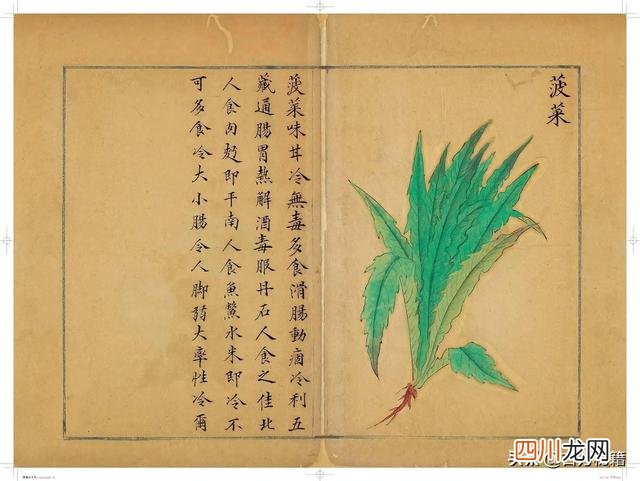 菠菜
菠菜味甘冷無毒多食滑腸動痼冷利五
藏通腸胃熱解酒毒服丹石人食之佳北
人食肉麫即平南人食魚鱉水米即冷不
可多食冷大小腸令人脚弱大率性冷爾
四川龙网